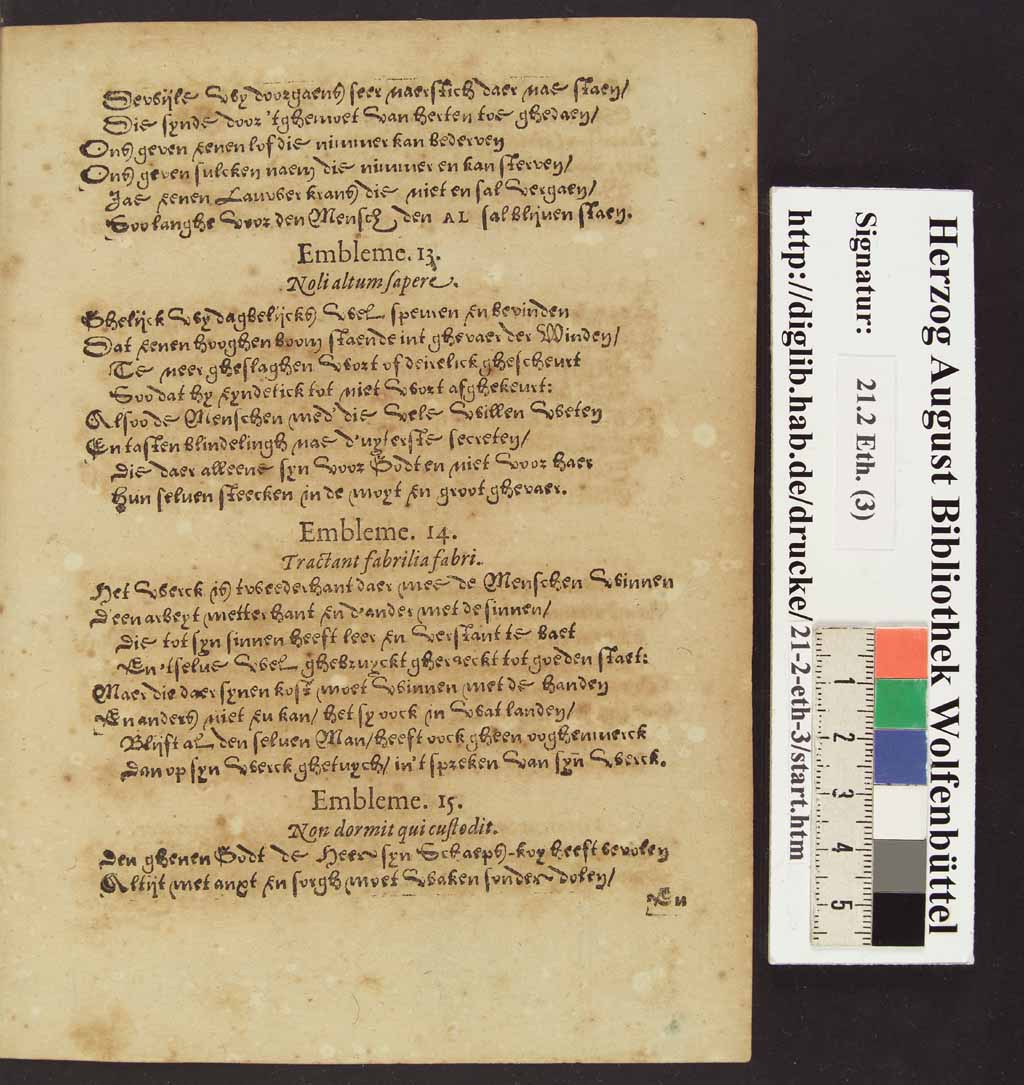 Dewijle wy doorgaens seer naerstich daer nae staen/
Die synde door 'tghemoet van herten toe ghedaen/
Ons geven eenen lof die nimmer kan bederven
Ons geven sulcken naem die nimmer en kan sterven/
Jae eenen Laurwer krans die niet en sal vergaen/
Soo langhe voor den Mensch den AL sal blijuen staen.
Embleme. 13.
Noli altum sapere.
Ghelijck wy dagbelijcks wel speuren en bevinden
Dat eenen hooghen boom staende int ghevaer der Winden/
Te neer gheslaghen wort of deirelick ghescheurt
Soo dat hy eyndelick tot niet wort afghekeurt:
Alsoo de Menschen med' die vele willen weten
En tasten blindelingh nae d'uyterste secreten/
Die daer alleene syn voor Godt en niet voor haer
Hun seluen steecken in de moyt en groot ghevaer.
Embleme. 14.
Tractant fabrilia fabri.
Het werck is tweederhant daer mee de Menschen winnen
D'een arbeyt metter hant en d'ander met de sinnen/
Die tot syn sinnen heeft leer en verstant te baet
En 'tselve wel ghebruyckt gheraeckt tot goeden staet:
Maer die daer synen kost moet winnen met de handen
En anders niet en kan/ het sy oock in wat landen/
Blijft al den selven Man/ heeft oock gheen ooghenmerck
Dan op syn werck ghetuych/ in't spreken van syn werck.
Embleme. 15.
Non dormit qui custodit.
Den ghenen Godt de Heer syn Schaeps-koy heeft bevolen
Altijt met anxt en sorgh moet waken sonder dolen/
En
Herzog August Bibliothek Wolfenbüttel
Signatur: 21.2 Eth. (3)
http://diglib.hab.de/drucke/21-2-eth-3/start.htm
1 2 3 4 5